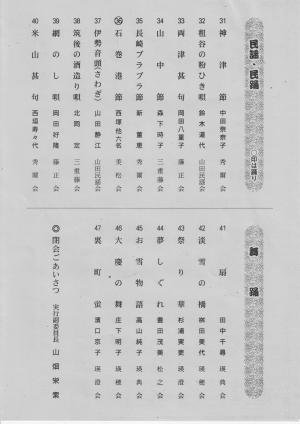 民謡・民踊
○印は踊り
31 神津節 中田奈奈子 秀瑠会
32 祖谷の粉ひき唄 鈴木満代 山田民謡会
33 両津甚句 岡田八重子 藤正会
34 山中節 森下時子 三重藤会
35 長崎ブラブラ節 新恵 秀瑠会
㊱ 石巻港節 西塚他六名 美松会
37 伊勢音頭(さわぎ) 山田静江 山田民謡会
38 筑後の酒造り唄 北岡定 三重藤会
39 網のし唄 岡田好隆 藤正会
40 米山甚句 西垣寿々代 秀瑠会
舞踊
41 扇 田中千尋 瑛典会
42 淡雪の橋 桝田美代 瑛穂会
43 祭り華 杉浦実更 瑛澄会
44 夢しぐれ 豊田茂美 松之会
45 お雪物語 高山純子 瑛寿会
46 大慶の舞 庄下明子 瑛穂会
47 裏町蛍 濱口京子 瑛澄会
◎閉会ごあいさつ 実行副委員長 山畑栄繁